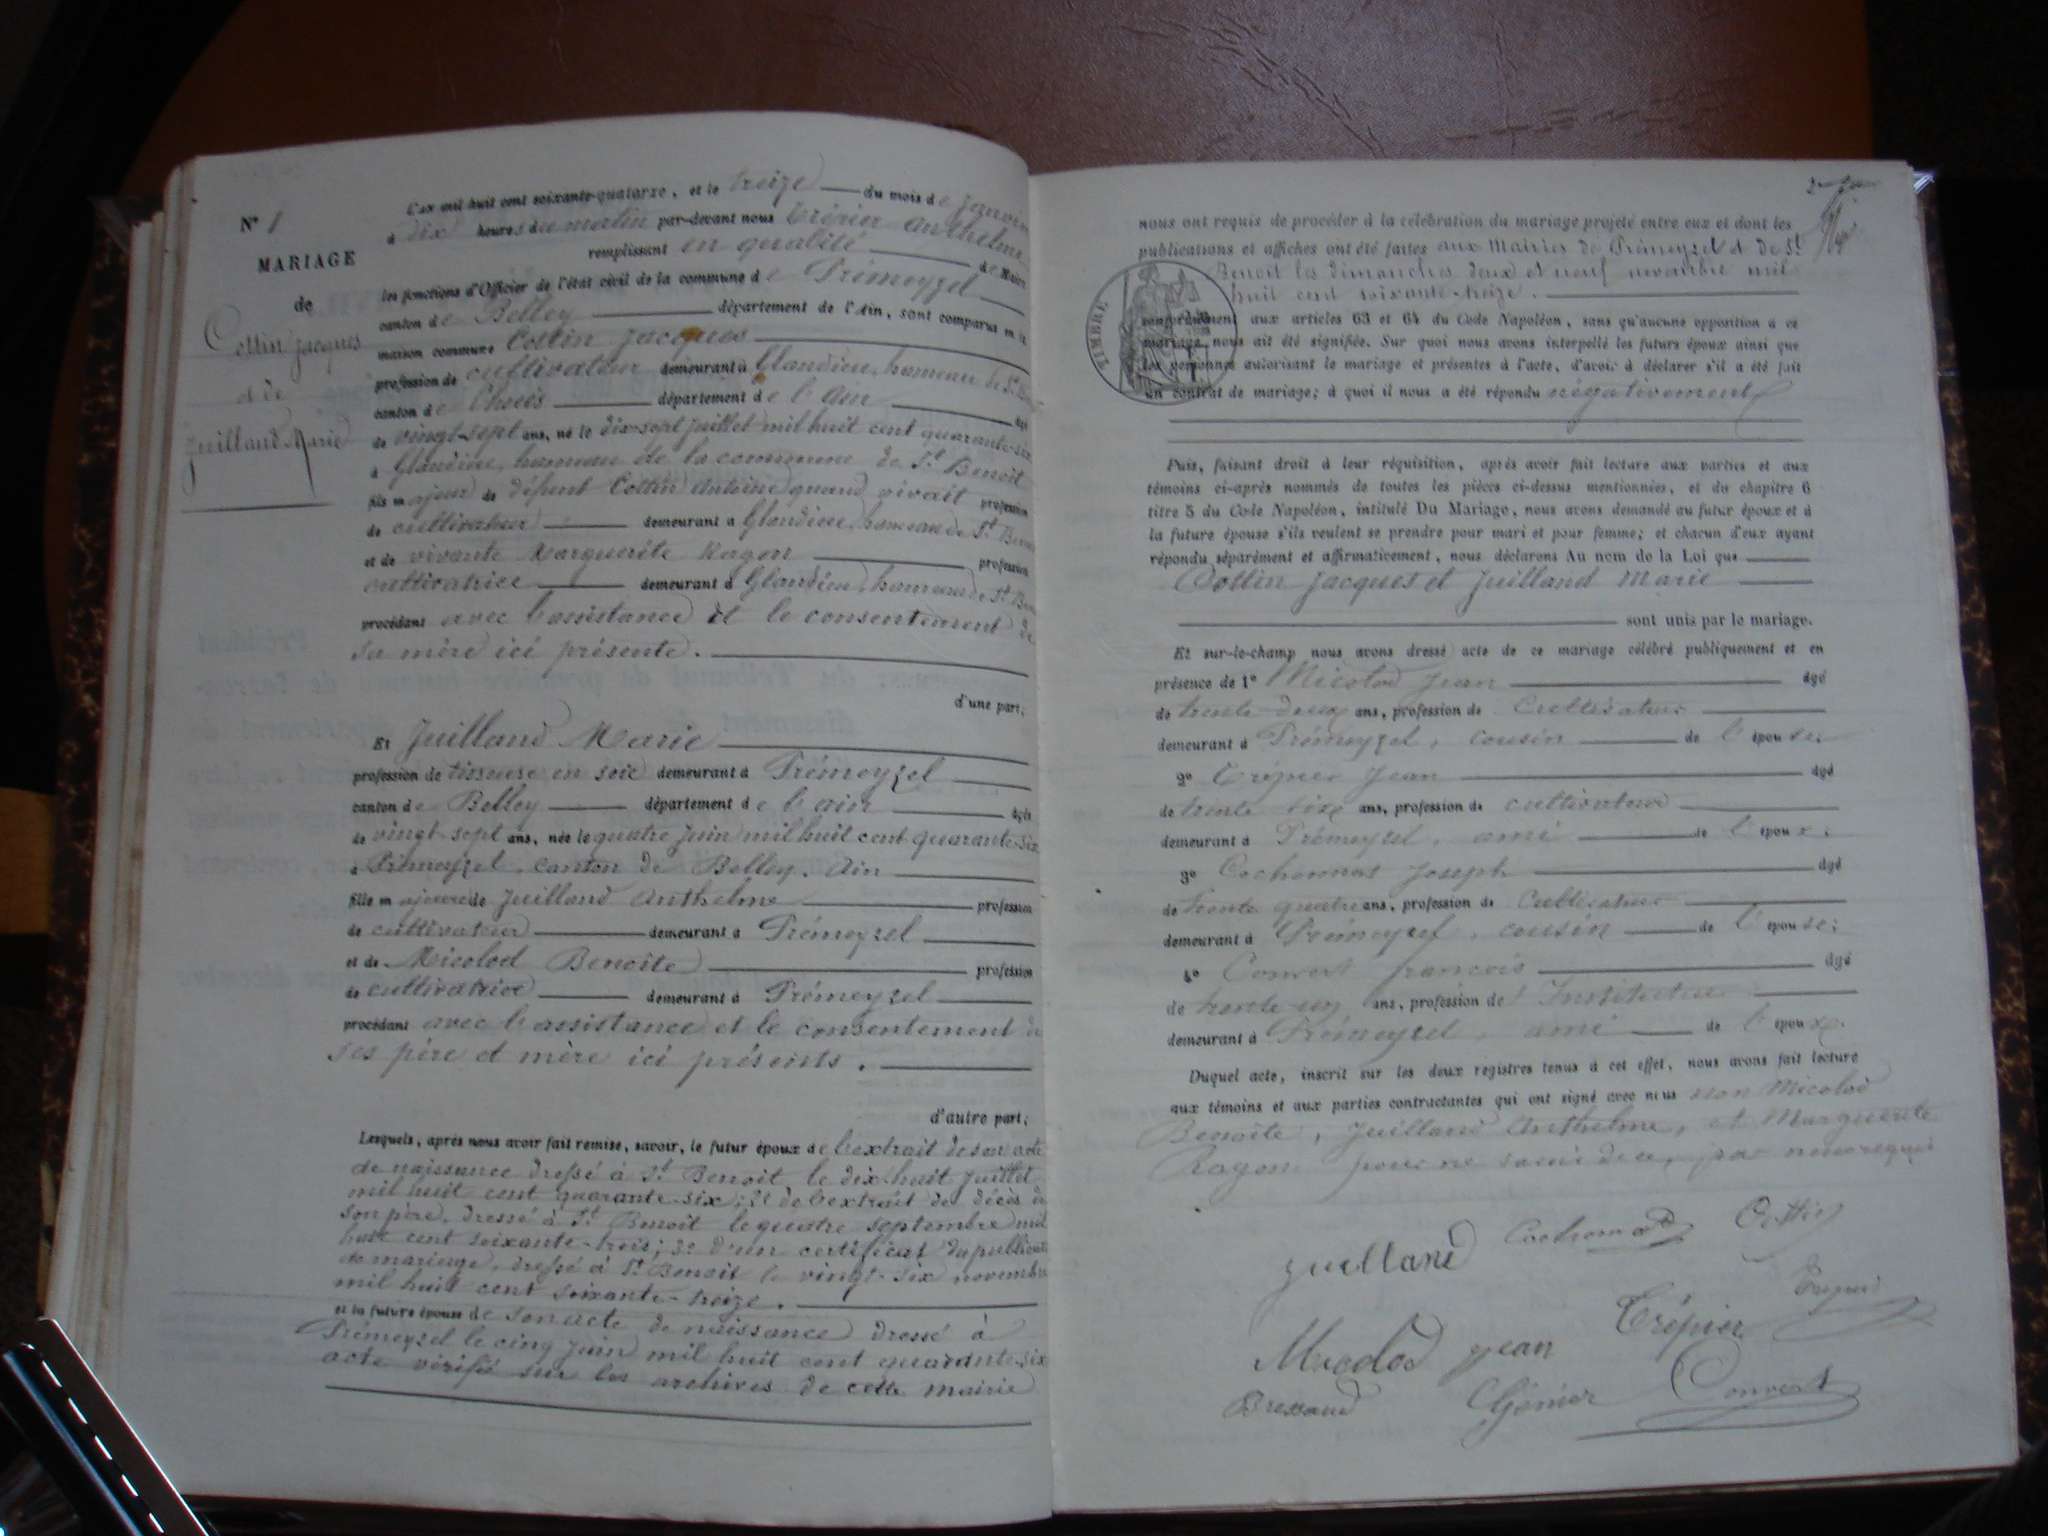 N° 1
MARIAGE
de
Cottin Jacques
et de
Juilland Marie
L'an mil huit cent soixante-quatorze, et le treize du mois de Janvier
à dix heures du matin par-devant nous Trépier Anthelme
remplissant en qualité de Maire
les fonctions d'Officier de l'état civil de la commune de Prémeyzel
canton de Belley département de l'Ain, sont comparus en la
maison commune Cottin Jacques
profession de cultivateur demeurant à Glandieu, hameau de St
canton de département de l'Ain âgé
de vingt-sept ans, né le dix-sept juillet mil huit cent quarante-six
à Glandieu, hameau de la commune de St Benoit
fils majeur de défunt Cottin Antoine quand vivait profession
de cultivateur demeurant à Glandieu, hameau de St Benoit
et de vivante Marguerite Ragon profession
cultivatrice demeurant à Glandieu, hameau de St Benoit
procédant avec l'assistance et le consentement de
sa mère ici présente.
d'une part;
Et Juilland Marie
profession de tisseuse en soie demeurant à Prémeyzel
canton de Belley département de l'ain âgée
de vingt-sept ans, née le quatre juin mil huit cent quarante-six
à Prémeyzel, canton de Belley, Ain
fille majeure de Juilland Anthelme profession
de cultivateur demeurant à Prémeyzel
et de Micolod Benoîte profession
de cultivatrice demeurant à Prémeyzel
procédant avec l'assistance et le consentement de
ses père et mère ici présents.
d'autre part;
Lesquels, après nous avoir fait remise, savoir, le futur époux de l'extrait de son acte
de naissance dressé à St Benoit le dix huit juillet
mil huit cent quarante-six; 2° de l'extrait de décès de
son père, dressé à St Benoit le quatre septembre mil
huit cent soixante-trois; 3° d'un certificat de publication
de mariage, dressé à St Benoit le vingt-six novembre
mil huit cent soixante-treize.
et la future épouse de son acte de naissance dressé à
Prémeyzel le cinq juin mil huit cent quarante-six
acte vérifié sur les archives de cette mairie
nous ont requis de procéder à la célébration du mariage projeté entre eux et dont les
publications et affiches ont été faites aux Mairies de Prémeyzel et de St
Benoit les dimanches deux et neuf novembre mil
huit cent soixante-treize.
TIMBRE
conformément aux articles 63 et 64 du Code Napoléon, sans qu'aucune opposition à ce
mariage nous ait été signifiée. Sur quoi nous avons interpellé les futurs époux ainsi que
les personnes autorisant le mariage et présentes à l'acte, d'avoir à déclarer s'il a été fait
un contrat de mariage; à quoi il nous a été répondu négativement
Puis, faisant droit à leur réquisition, après avoir fait lecture aux parties et aux
témoins ci-après nommés de toutes les pièces ci-dessus mentionnées, et du chapitre 6
titre 5 du Code Napoléon, intitulé Du Mariage, nous avons demandé au futur époux et à
la future épouse s'ils veulent se prendre pour mari et pour femme; et chacun d'eux ayant
répondu séparément et affirmativement, nous déclarons Au nom de la Loi que
Cottin Jacques et Juilland Marie
sont unis par le mariage.
Et sur-le-champ nous avons dressé acte de ce mariage célébré publiquement et en
présence de 1° Micolod Jean âgé
de trente-deux ans, profession de Cultivateur
demeurant à Prémeyzel, cousin de l'épouse;
2° Trépier Jean âgé
de trente six ans, profession de cultivateur
demeurant à Prémeyzel, ami de l'époux;
3° Cochonnat Joseph âgé
de trente quatre ans, profession de Cultivateur
demeurant à Prémeyzel, cousin de l'épouse;
4° Convert françois âgé
de trente un ans, profession de Instituteur
demeurant à Prémeyzel, ami de l'époux.
Duquel acte, inscrit sur les deux registres tenus à cet effet, nous avons fait lecture
aux témoins et aux parties contractantes qui ont signé avec nous non Micolod
Benoîte, Juilland Anthelme, et Marguerite
Ragon pour ne savoir de ce par nous requis
Juilland Cochonnat Cottin
Micolod Jean Trépier Trépier
Bressand Convert